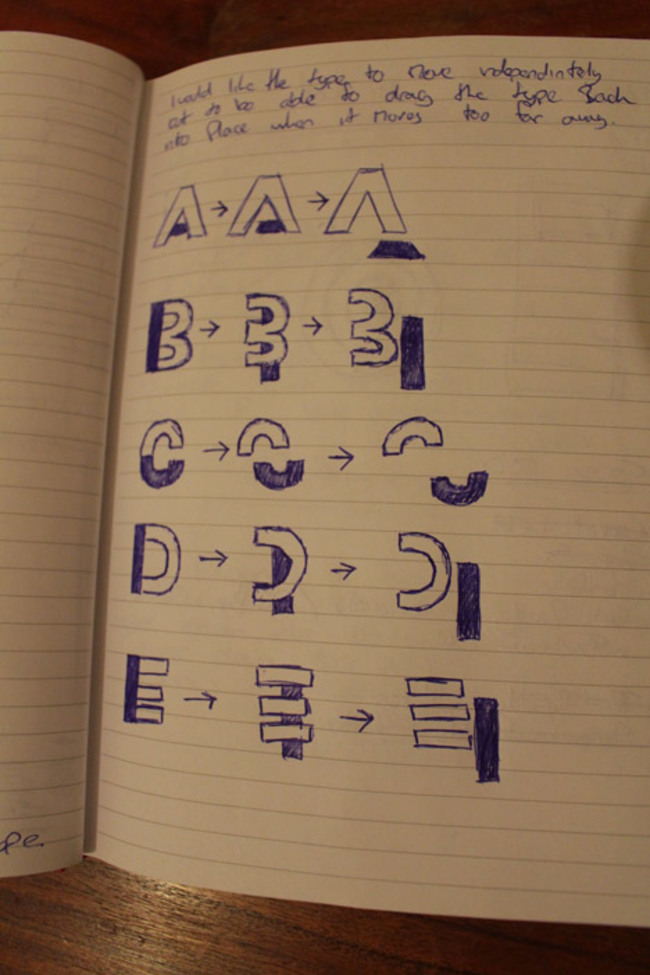 I would like the type to move independintely
act to be able to drag the type back
into place when it moves too far away.
A → A → A
B → B → B
C → C → C
D → D → D
E → E → E
ope.